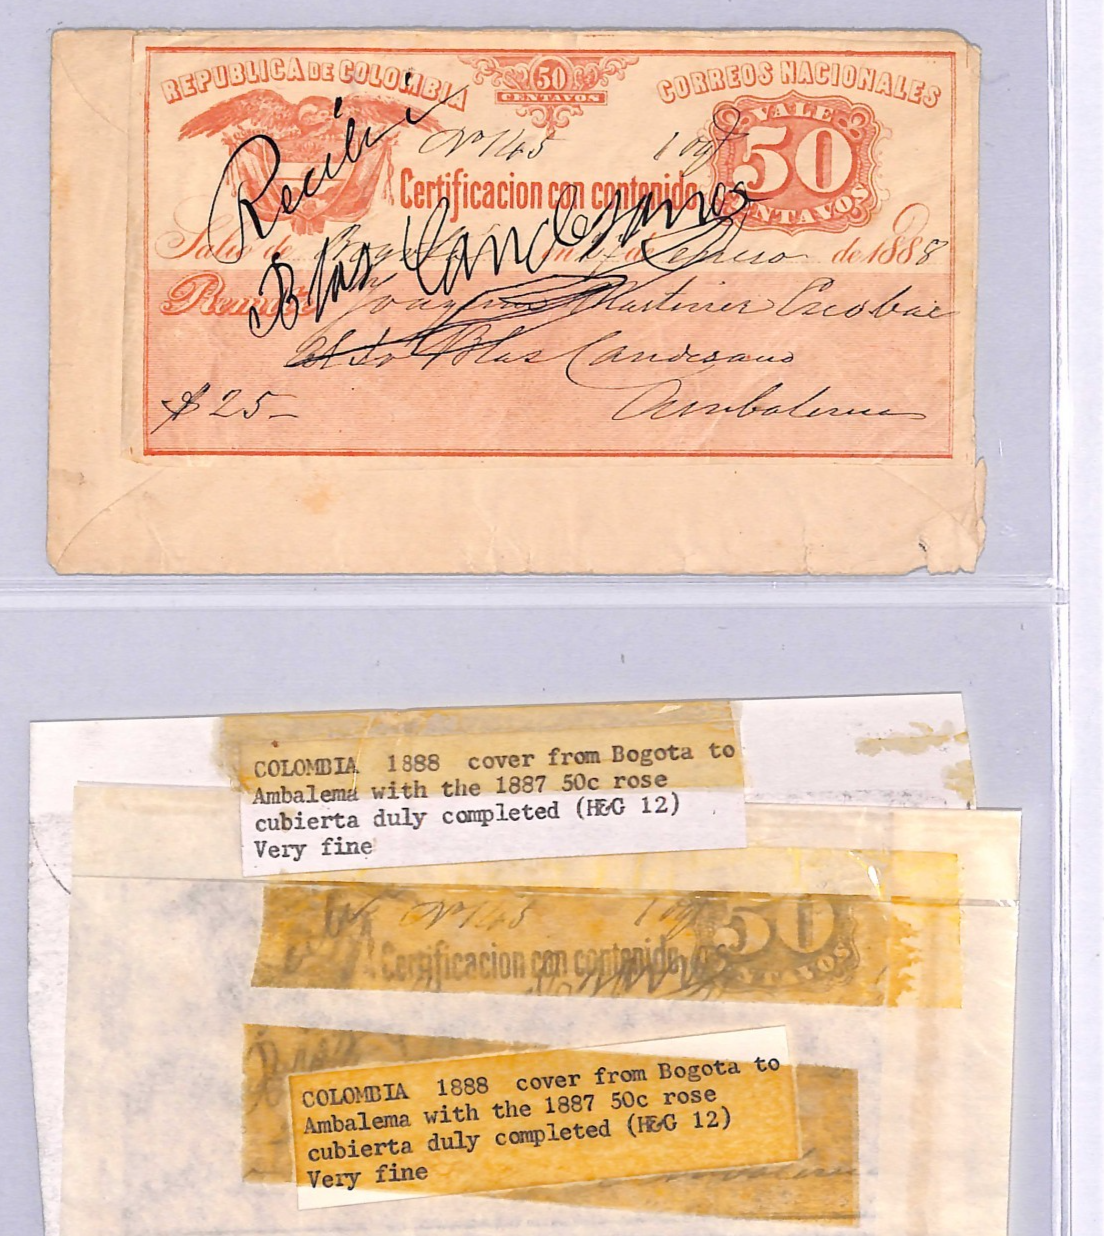 REPUBLICA DE COLOMBIA
50
CENTAVOS
CORREOS NACIONALES
VALE
50
CENTAVOS
No 145
Certificacion con contenido
Salió de Bogotá en de Febrero de 1888
Remite Joaquin Martinez Escobar
Blas Candesano
$ 25-
Ambalema
Recibí
Blas Candesano
COLOMBIA 1888 cover from Bogota to
Ambalema with the 1887 50c rose
cubierta duly completed (H&G 12)
Very fine
No 145
50
Certificacion con contenido
COLOMBIA 1888 cover from Bogota to
Ambalema with the 1887 50c rose
cubierta duly completed (H&G 12)
Very fine